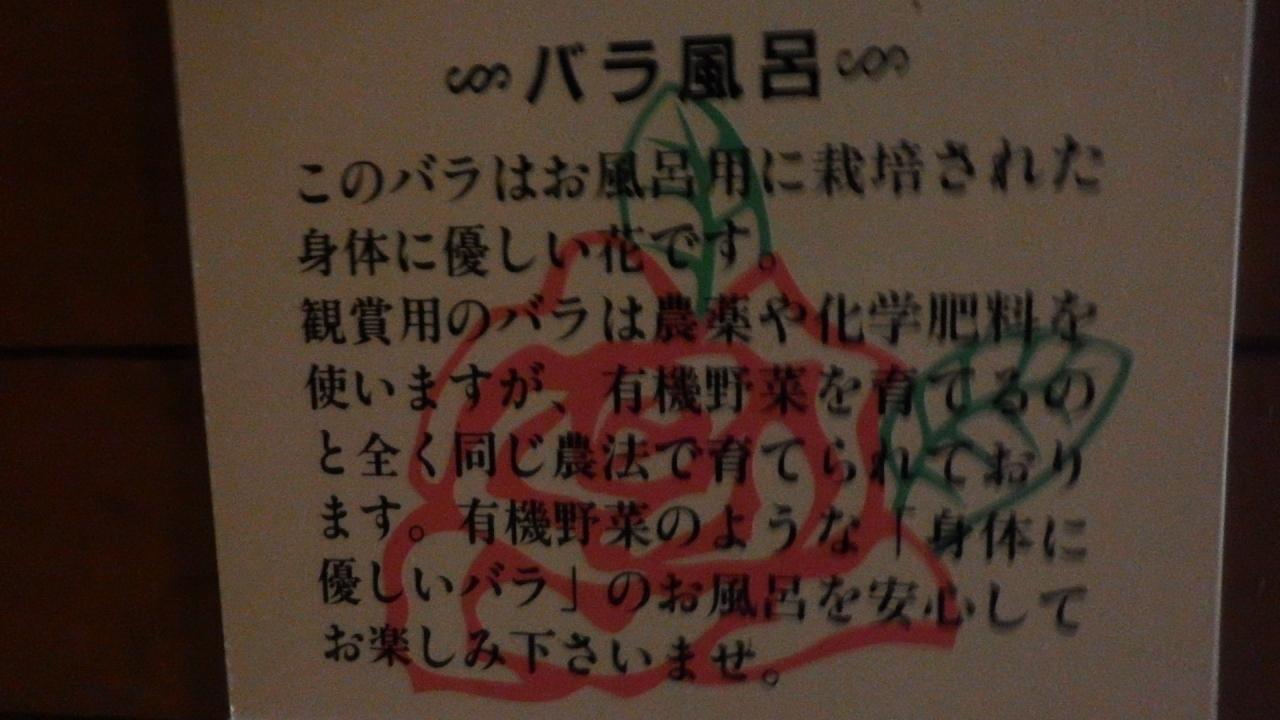 ∽バラ風呂∽
このバラはお風呂用に栽培された
身体に優しい花です。
観賞用のバラは農薬や化学肥料を
使いますが、有機野菜を育てるの
と全く同じ農法で育てられており
ます。有機野菜のような「身体に
優しいバラ」のお風呂を安心して
お楽しみ下さいませ。